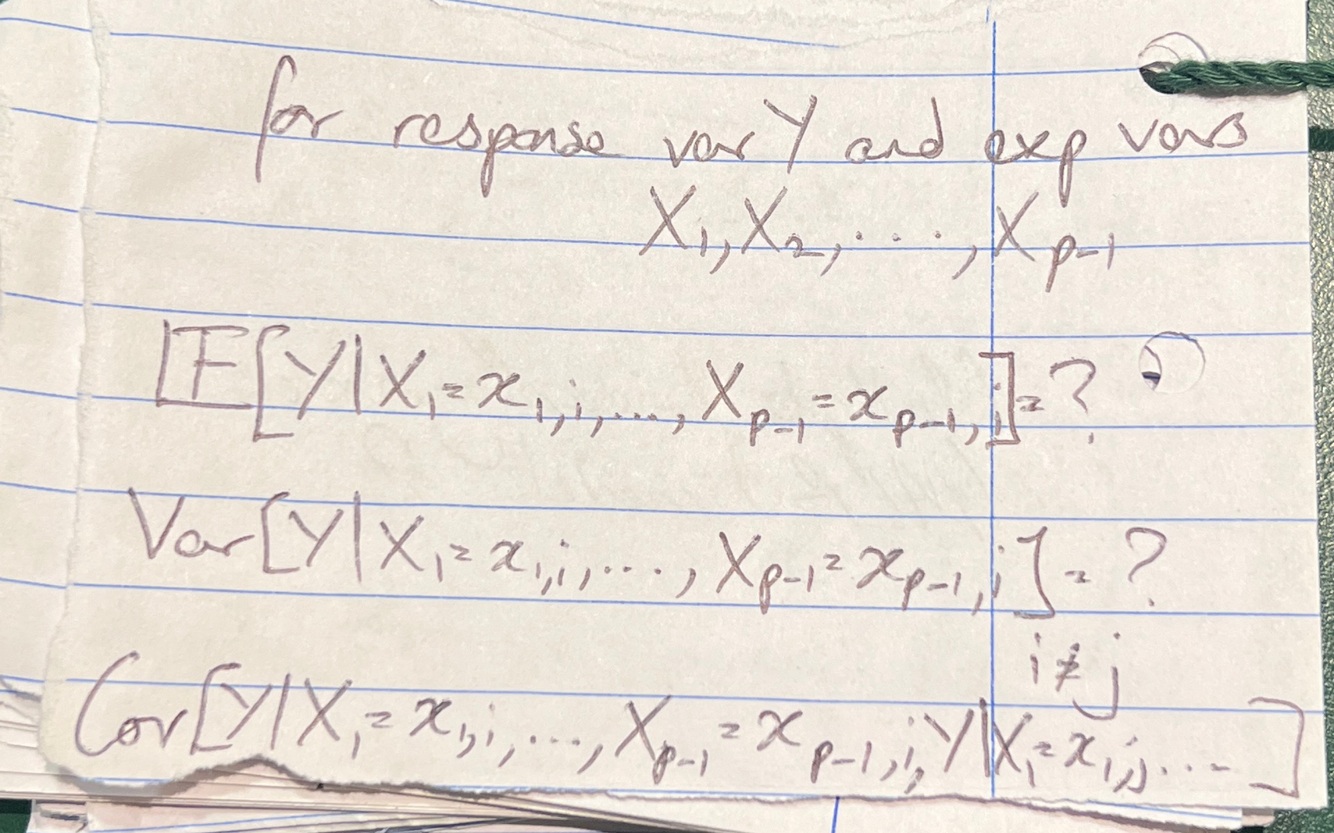 for response var Y and exp vars
X₁, X₂, ...., Xₚ₋₁
𝔼[Y|X₁=x₁,ᵢ,...., Xₚ₋₁=xₚ₋₁,ᵢ]=?
Var[Y|X₁=x₁,ᵢ,...., Xₚ₋₁=xₚ₋₁,ᵢ]=?
i≠j
Cor[Y|X₁=x₁,ᵢ,...., Xₚ₋₁=xₚ₋₁,ᵢ, Y|X₁=x₁,ⱼ....]